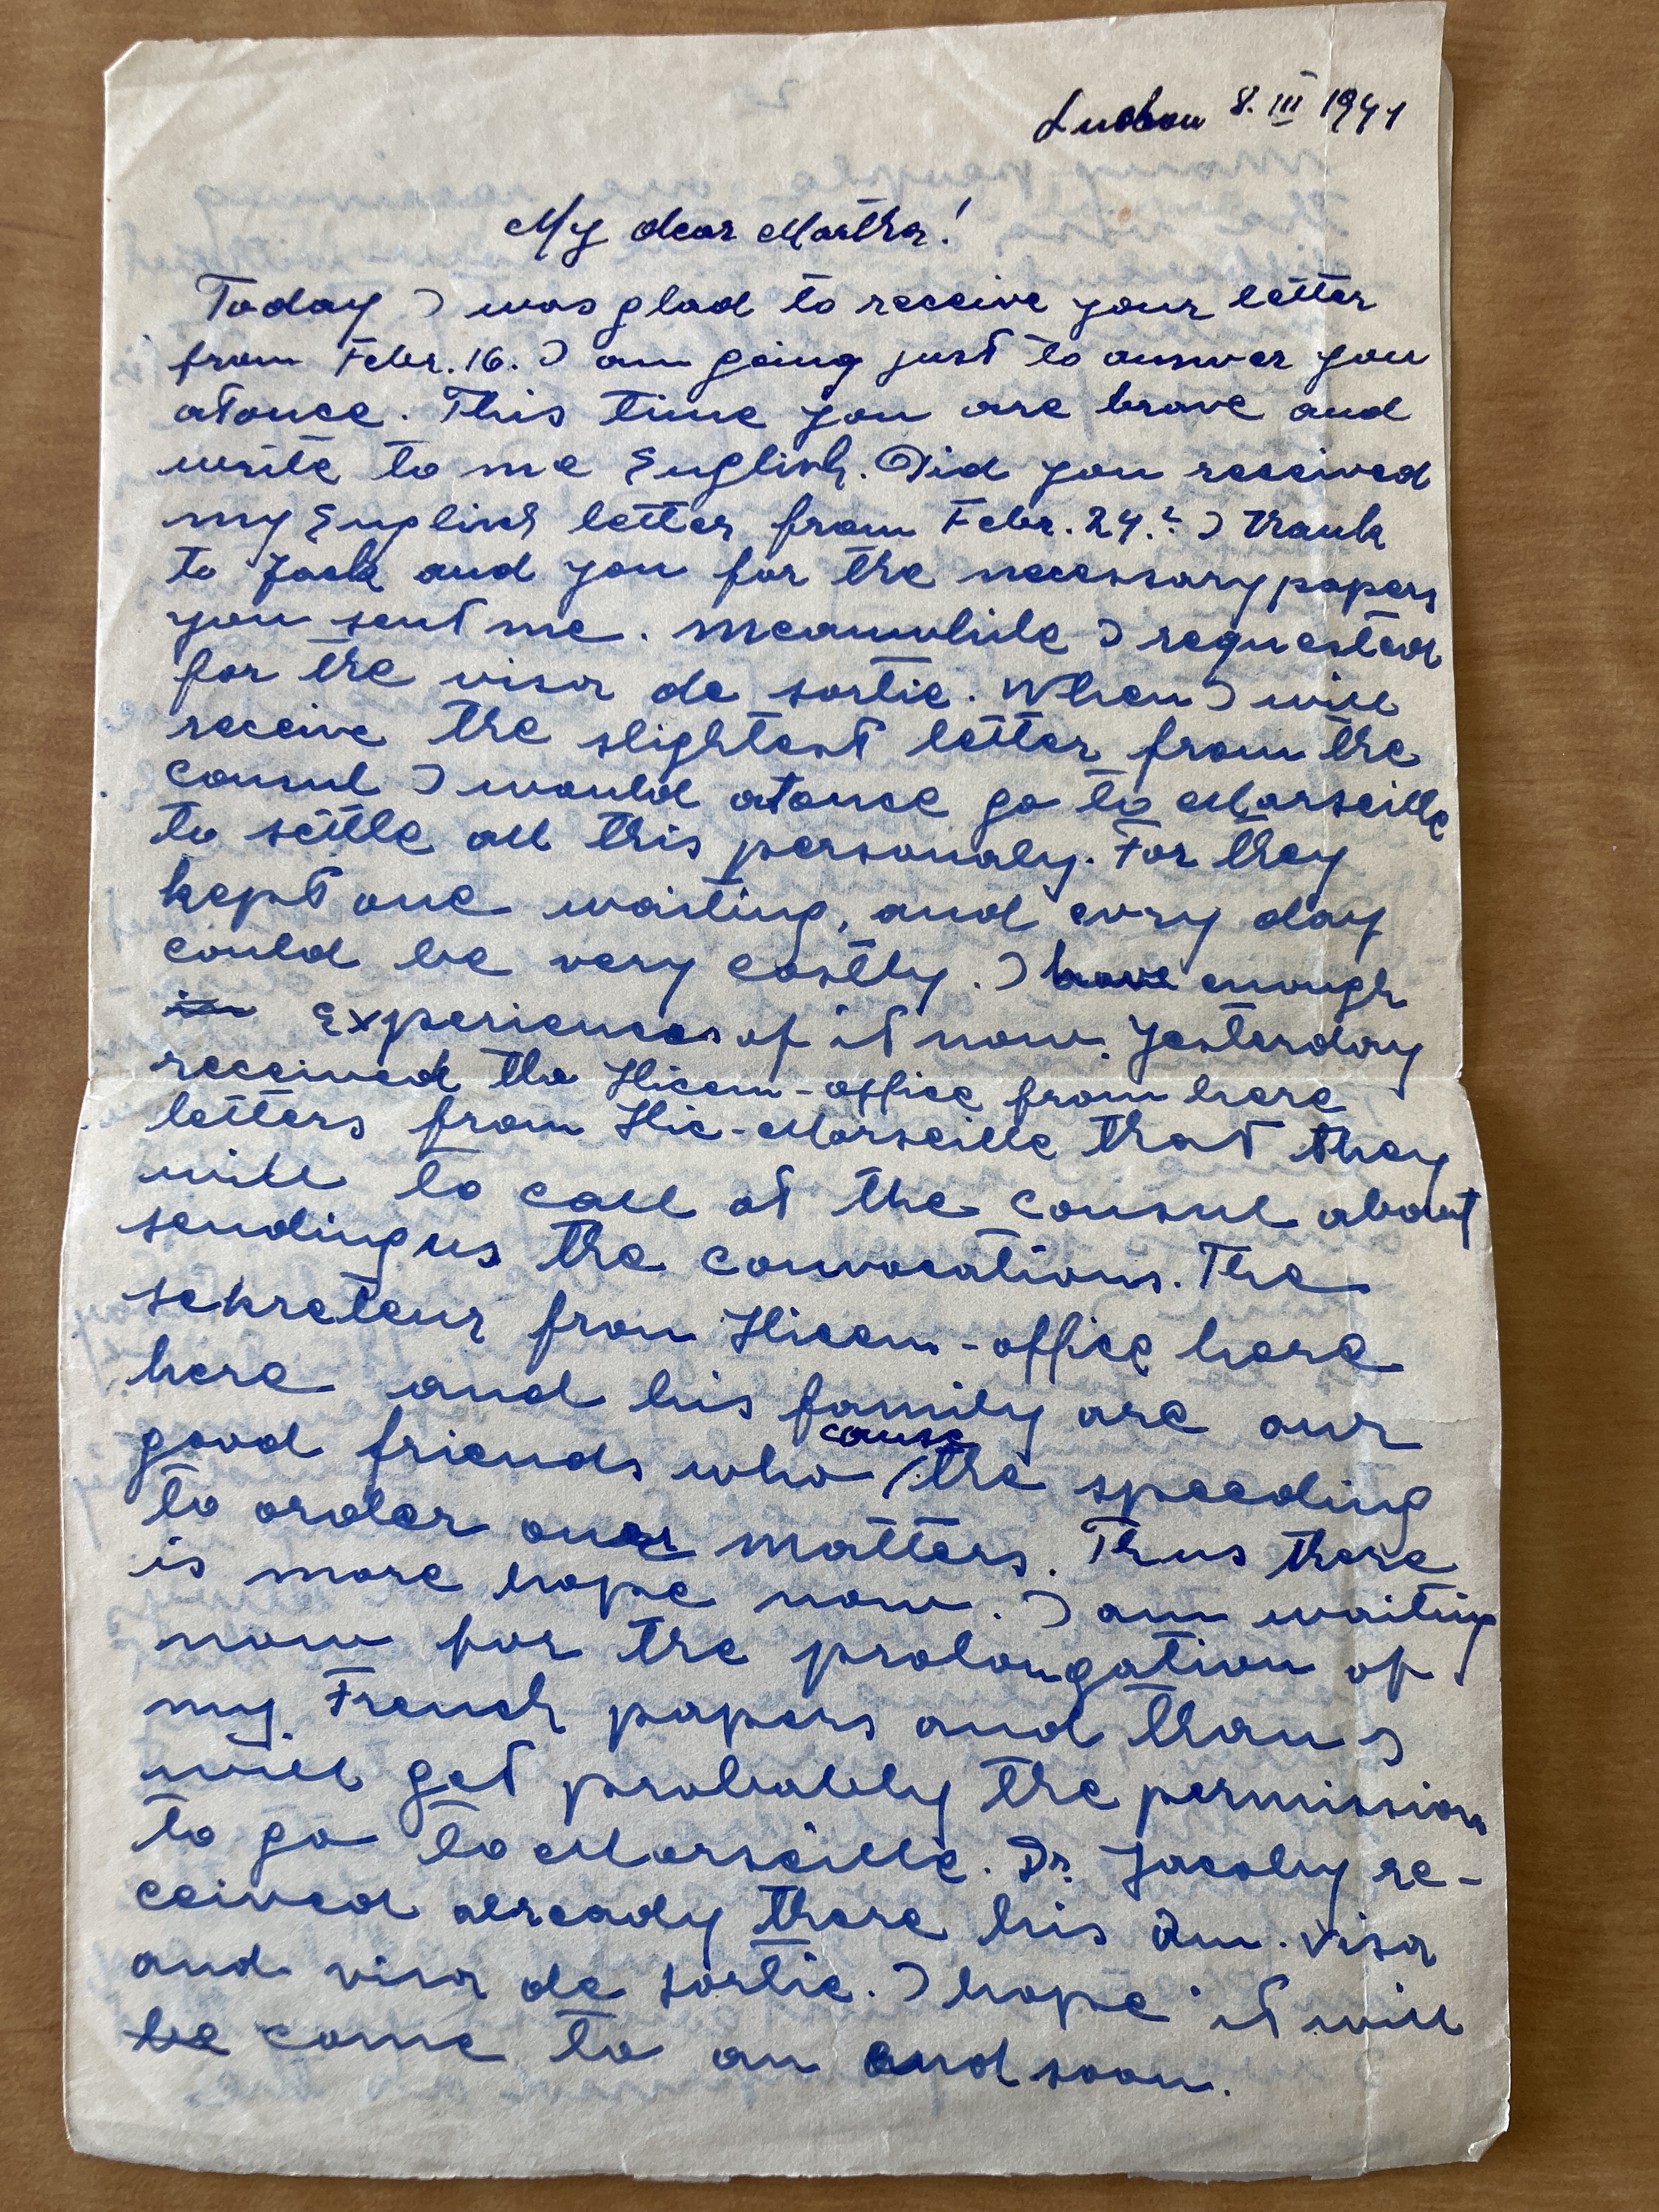 8. III 1941
My dear Martha!
Today I was glad to receive your letter
from Febr. 16. I am going just to answer you
atonce. This time you are brave and
write to me English. Did you received
my English letter from Febr. 24.? I thank
to Jack and you for the necessary papers
you sent me. Meanwhile I requested
for the visa de sortie. When I will
receive the slightest letter from the
consul I would atonce go to Marseille
to settle all this personaly. For they
kept one waiting, and evry day
could be very costly. I have enough
in Experiences of it now. Yesterday
received the Hicem-office from here
letters from Hic-Marseille that they
will to call at the consul about
sending us the convocations. The
sekreteur from Hicem-office here
here and his family are our
good friends who cause the speeding
to order our matters. Thus there
is more hope now. I am waiting
now for the prolongation of
my French papers and than I
will get probably the permission
to go to Marseille. Dr. Jacoby re-
ceived already there his Am. visa
and visa de sortie. I hope it will
be come to an end soon.